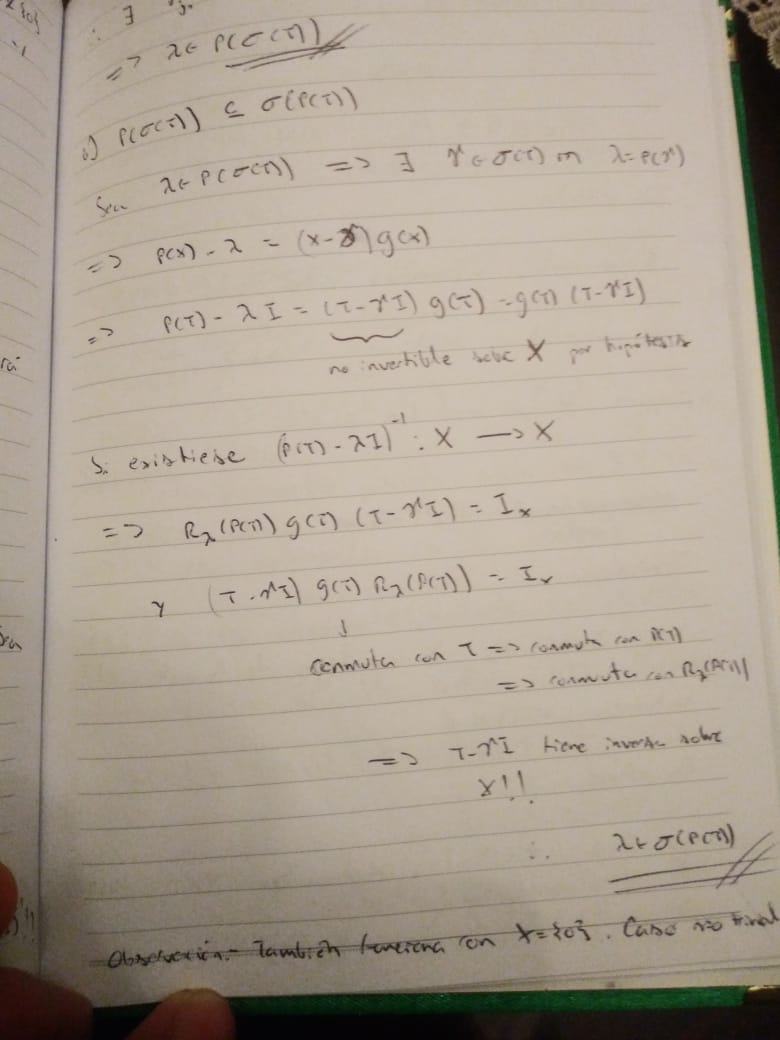 ∴ ∃
=> λ∈ P(σ(T))
b) P(σ(T)) ⊆ σ(P(T))
Sea λ∈ P(σ(T)) => ∃ γ∈ σ(T) λ=P(γ)
=> P(x) - λ = (x-γ) g(x)
=> P(T) - λI = (T-γI) g(T) = g(T) (T-γI)
no invertible sobre X por hipótesis
Si existiese (P(T) - λI)⁻¹ : X → X
=> R_λ(P(T)) g(T) (T-γI) = I_x
y (T-γI) g(T) R_λ(P(T)) = I_x
↓
conmuta con T => conmuta con P(T)
=> conmuta con R_λ(P(T))
=> T-γI tiene inversa sobre
X!!
∴ λ∈ σ(P(T))
Observación.- También funciona con X={0}. Caso no trivial